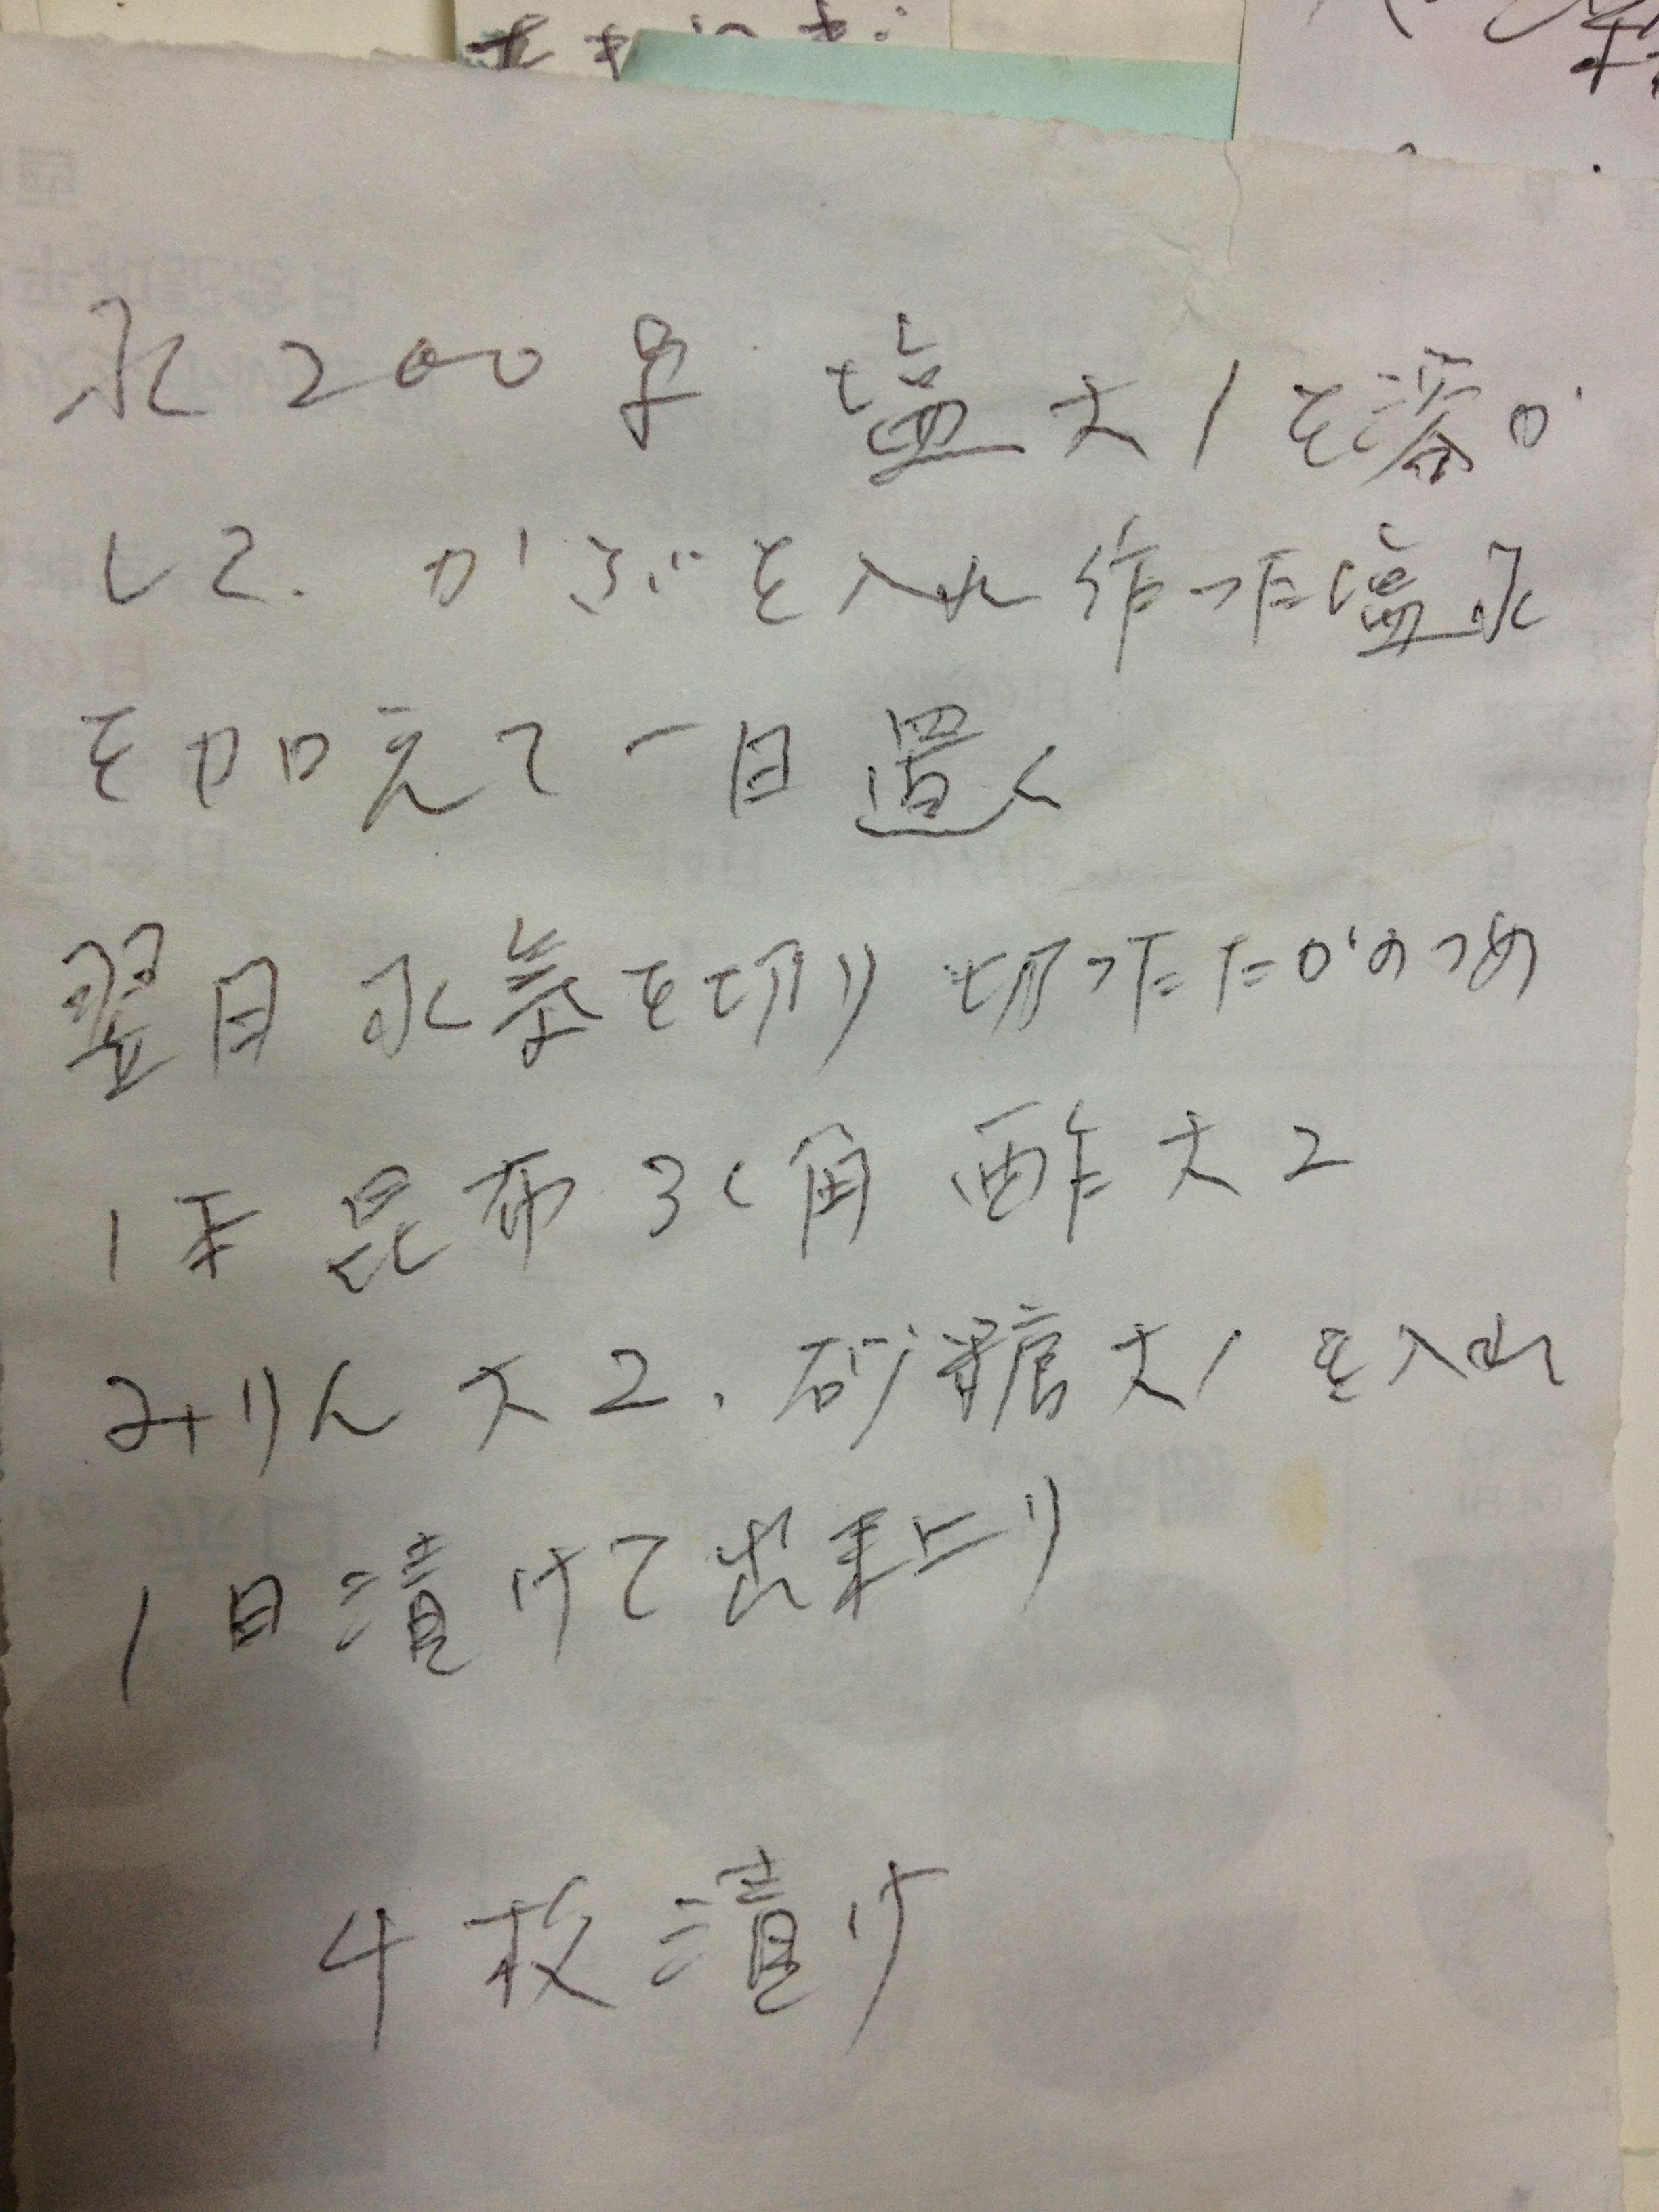 水200cc 塩大1を溶か
して、かぶを入れ作った塩水
を加えて一日置く
翌日水気を切り切ったたかのつめ
1本昆布3く角酢大2
みりん大2、砂糖大1を入れ
1日漬けて出来上り
4枚漬け